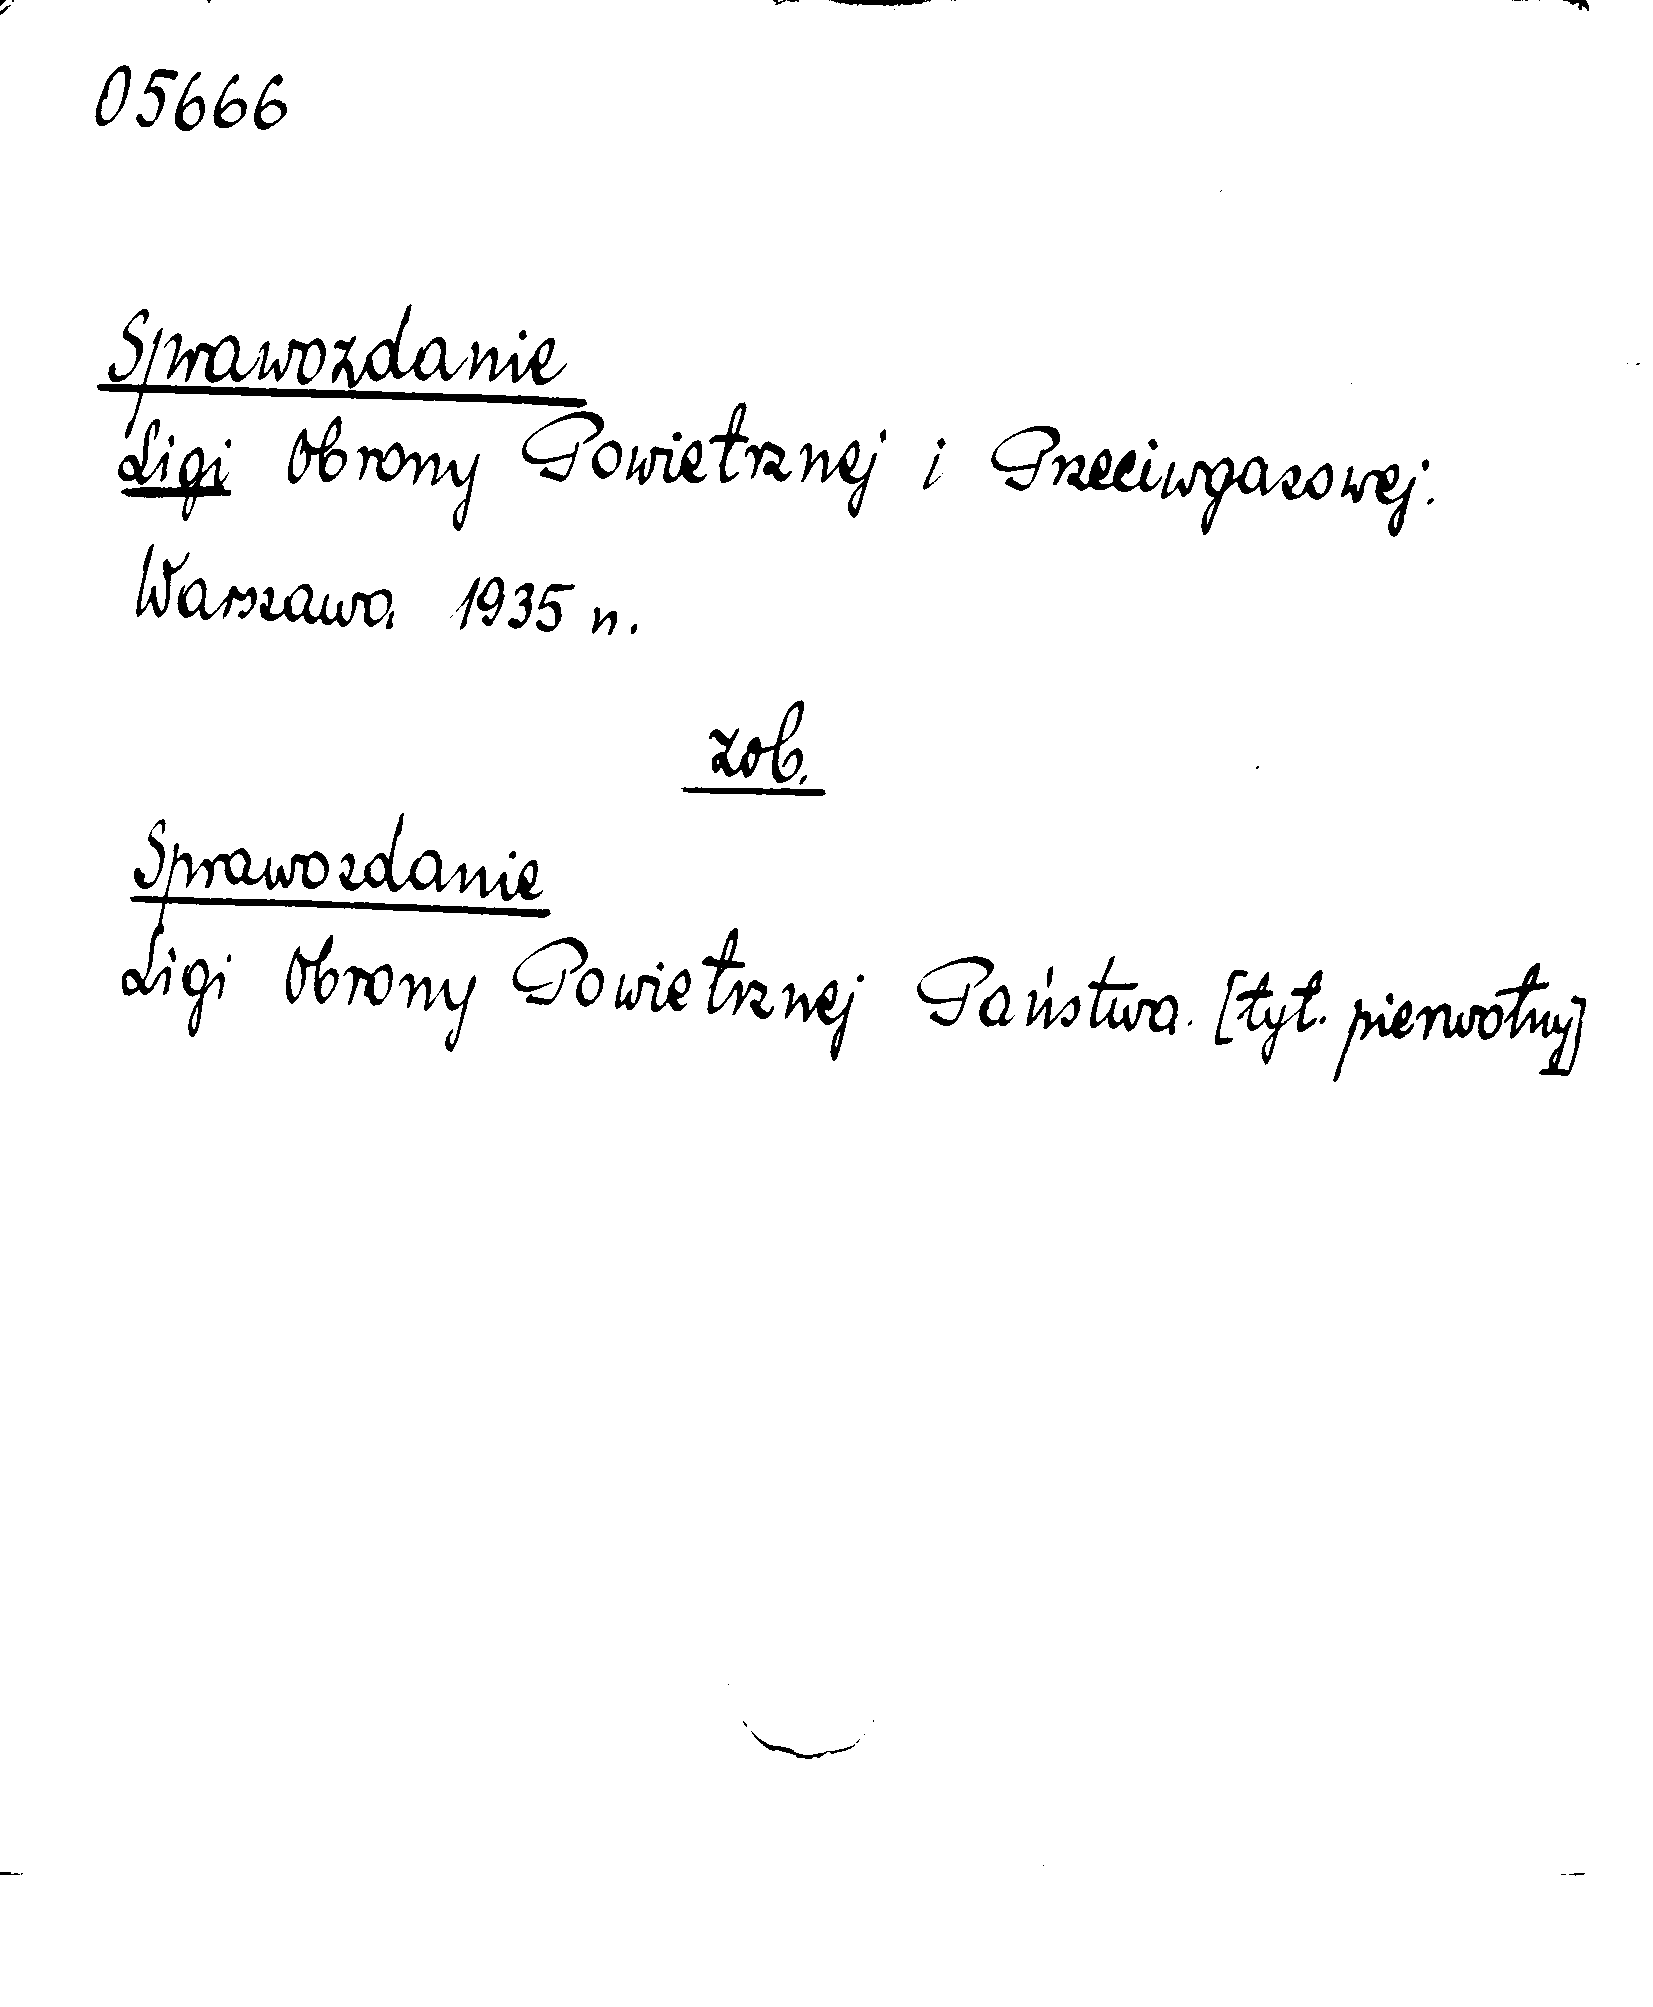 05666
Sprawozdanie
Ligi Obrony Powietrznej i Przeciwgazowej.
Warszawa 1935 r.
zob.
Sprawozdanie
Ligi Obrony Powietrznej Państwa. [tyt. pierwotny]